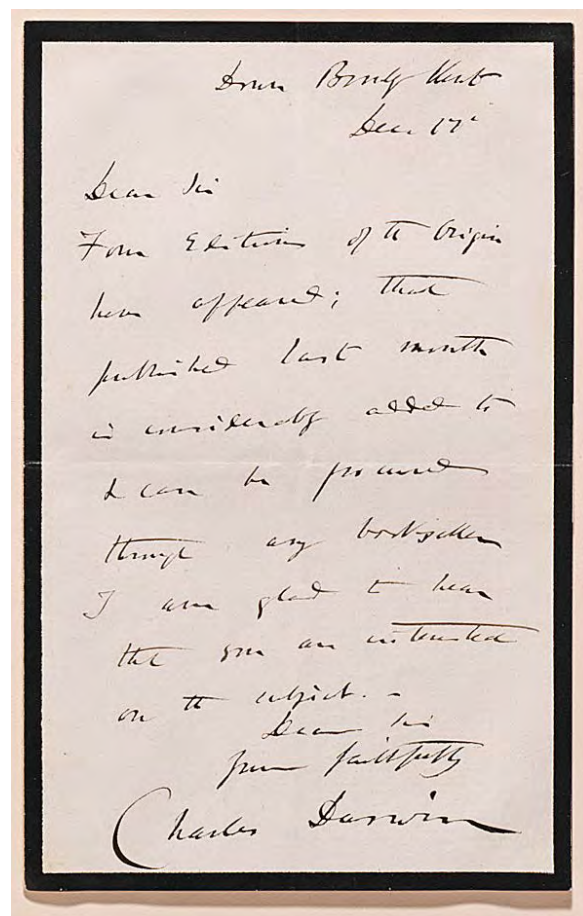 Down Bromley Kent
Dec 17
Dear Sir
Four Editions of the Origin
have appeared; that
published last month
is considerably added to
& can be procured
through any bookseller
I am glad to hear
that you are interested
on the subject. —
Dear Sir
yours faithfully
Charles Darwin